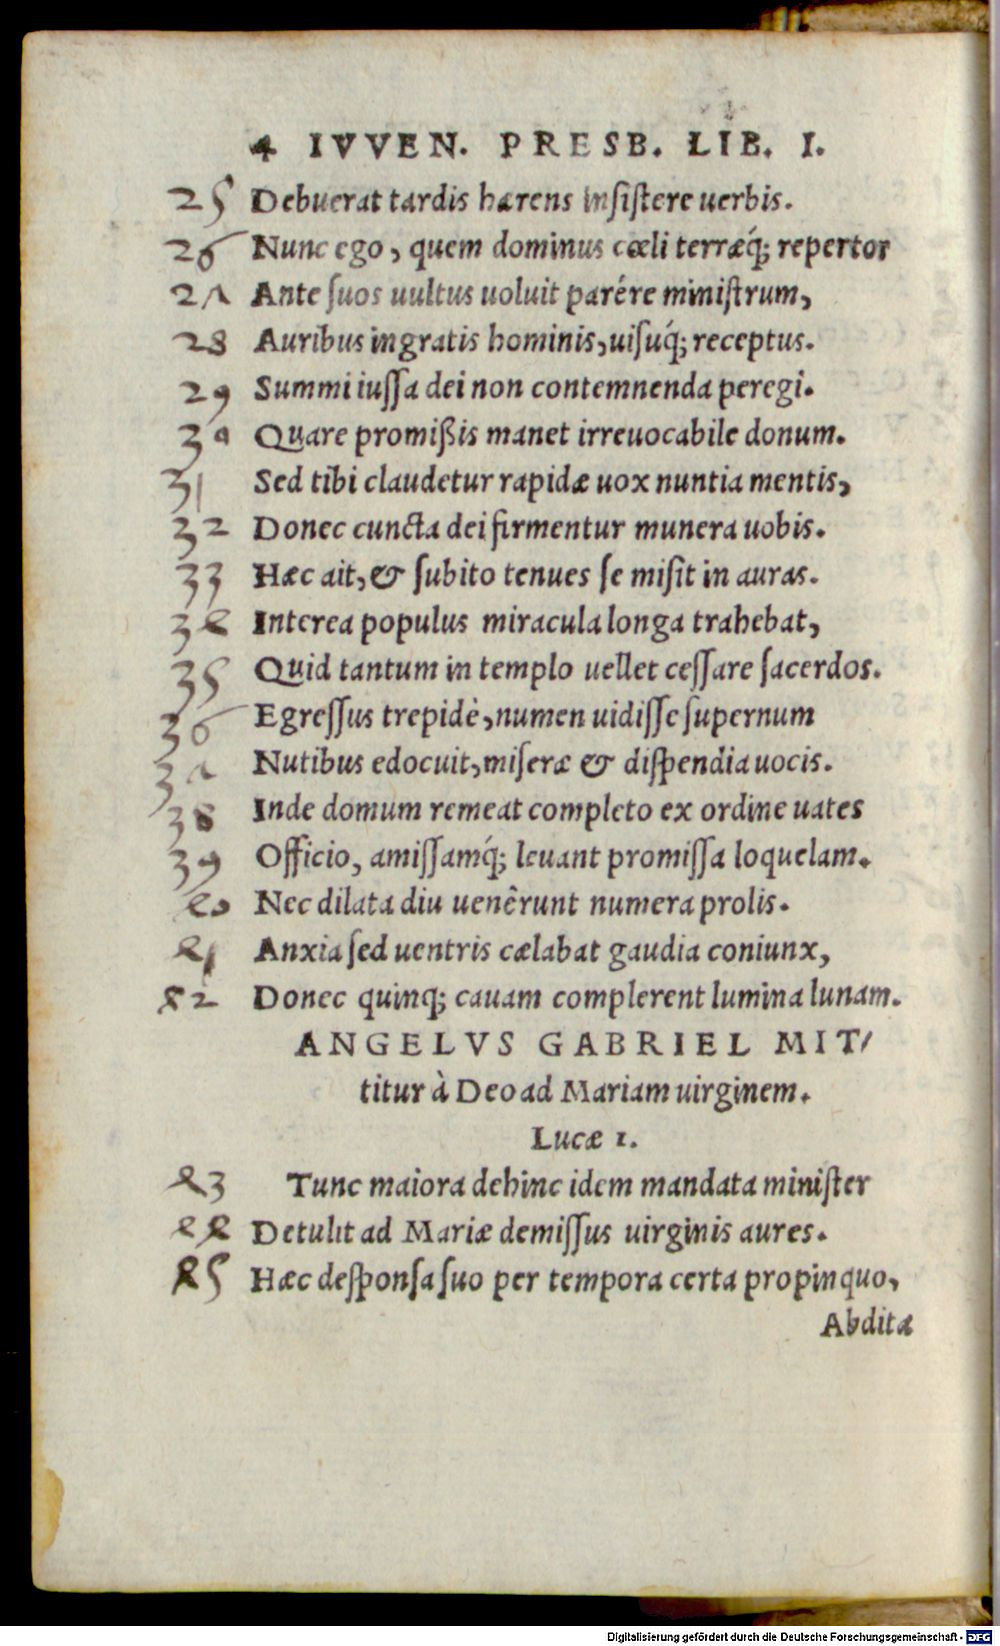 4 IVVEN. PRESB. LIB. I.
25 Debuerat tardis hærens insistere uerbis.
26 Nunc ego, quem dominus cœli terræq́; repertor
27 Ante suos uultus uoluit parére ministrum,
28 Auribus ingratis hominis, uisuq́; receptus.
29 Summi iussa dei non contemnenda peregi.
30 Quare promißis manet irreuocabile donum.
31 Sed tibi claudetur rapidæ uox nuntia mentis,
32 Donec cuncta dei firmentur munera uobis.
33 Hæc ait, & subito tenues se misit in auras.
34 Interea populus miracula longa trahebat,
35 Quid tantum in templo uellet cessare sacerdos.
36 Egressus trepidè, numen uidisse supernum
37 Nutibus edocuit, miseræ & dispendia uocis.
38 Inde domum remeat completo ex ordine uates
39 Officio, amissamq́; leuant promissa loquelam.
40 Nec dilata diu uenêrunt numera prolis.
41 Anxia sed uentris cælabat gaudia coniunx,
42 Donec quinq; cauam complerent lumina lunam.
ANGELVS GABRIEL MIT/
titur à Deo ad Mariam uirginem.
Lucæ 1.
43 Tunc maiora dehinc idem mandata minister
44 Detulit ad Mariæ demissus uirginis aures.
45 Hæc desponsa suo per tempora certa propinquo,
Abditæ
Digitalisierung gefördert durch die Deutsche Forschungsgemeinschaft - DFG